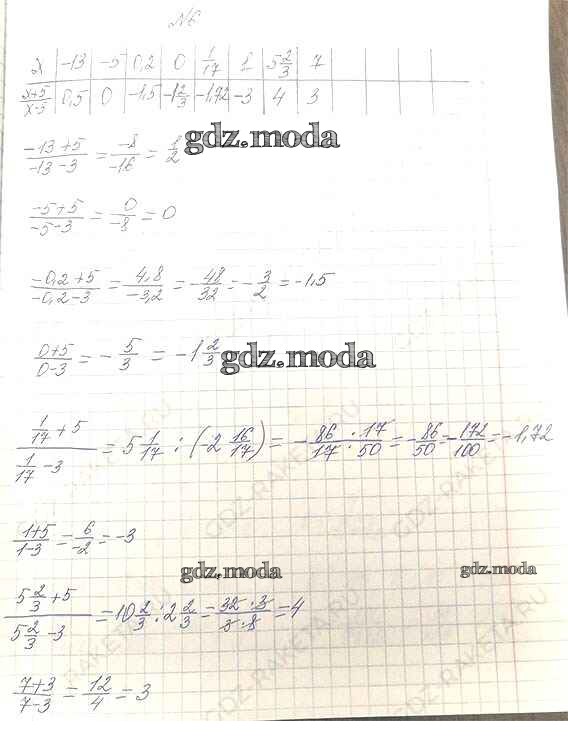 №6
x | -13 | -5 | 0,2 | 0 | 1/17 | 1 | 5 2/3 | 7
x+5/x-3 | 0,5 | 0 | -1,5 | -1 2/3 | -1,72 | -3 | 4 | 3
-13+5/-13-3 = -8/-16 = 1/2
gdz.moda
-5+5/-5-3 = 0/-8 = 0
-0,2+5/-0,2-3 = 4,8/-3,2 = -48/32 = -3/2 = -1,5
0+5/0-3 = -5/3 = -1 2/3
gdz.moda
1/17+5 / 1/17-3 = 5 1/17 : (-2 16/17) = -86·17/17·50 = -86/50 = -172/100 = -1,72
1+5/1-3 = 6/-2 = -3
gdz.moda
gdz.moda
5 2/3+5 / 5 2/3-3 = 10 2/3 : 2 2/3 = 32·3/3·8 = 4
7+3/7-3 = 12/4 = 3
GDZ-RAKETA.RU